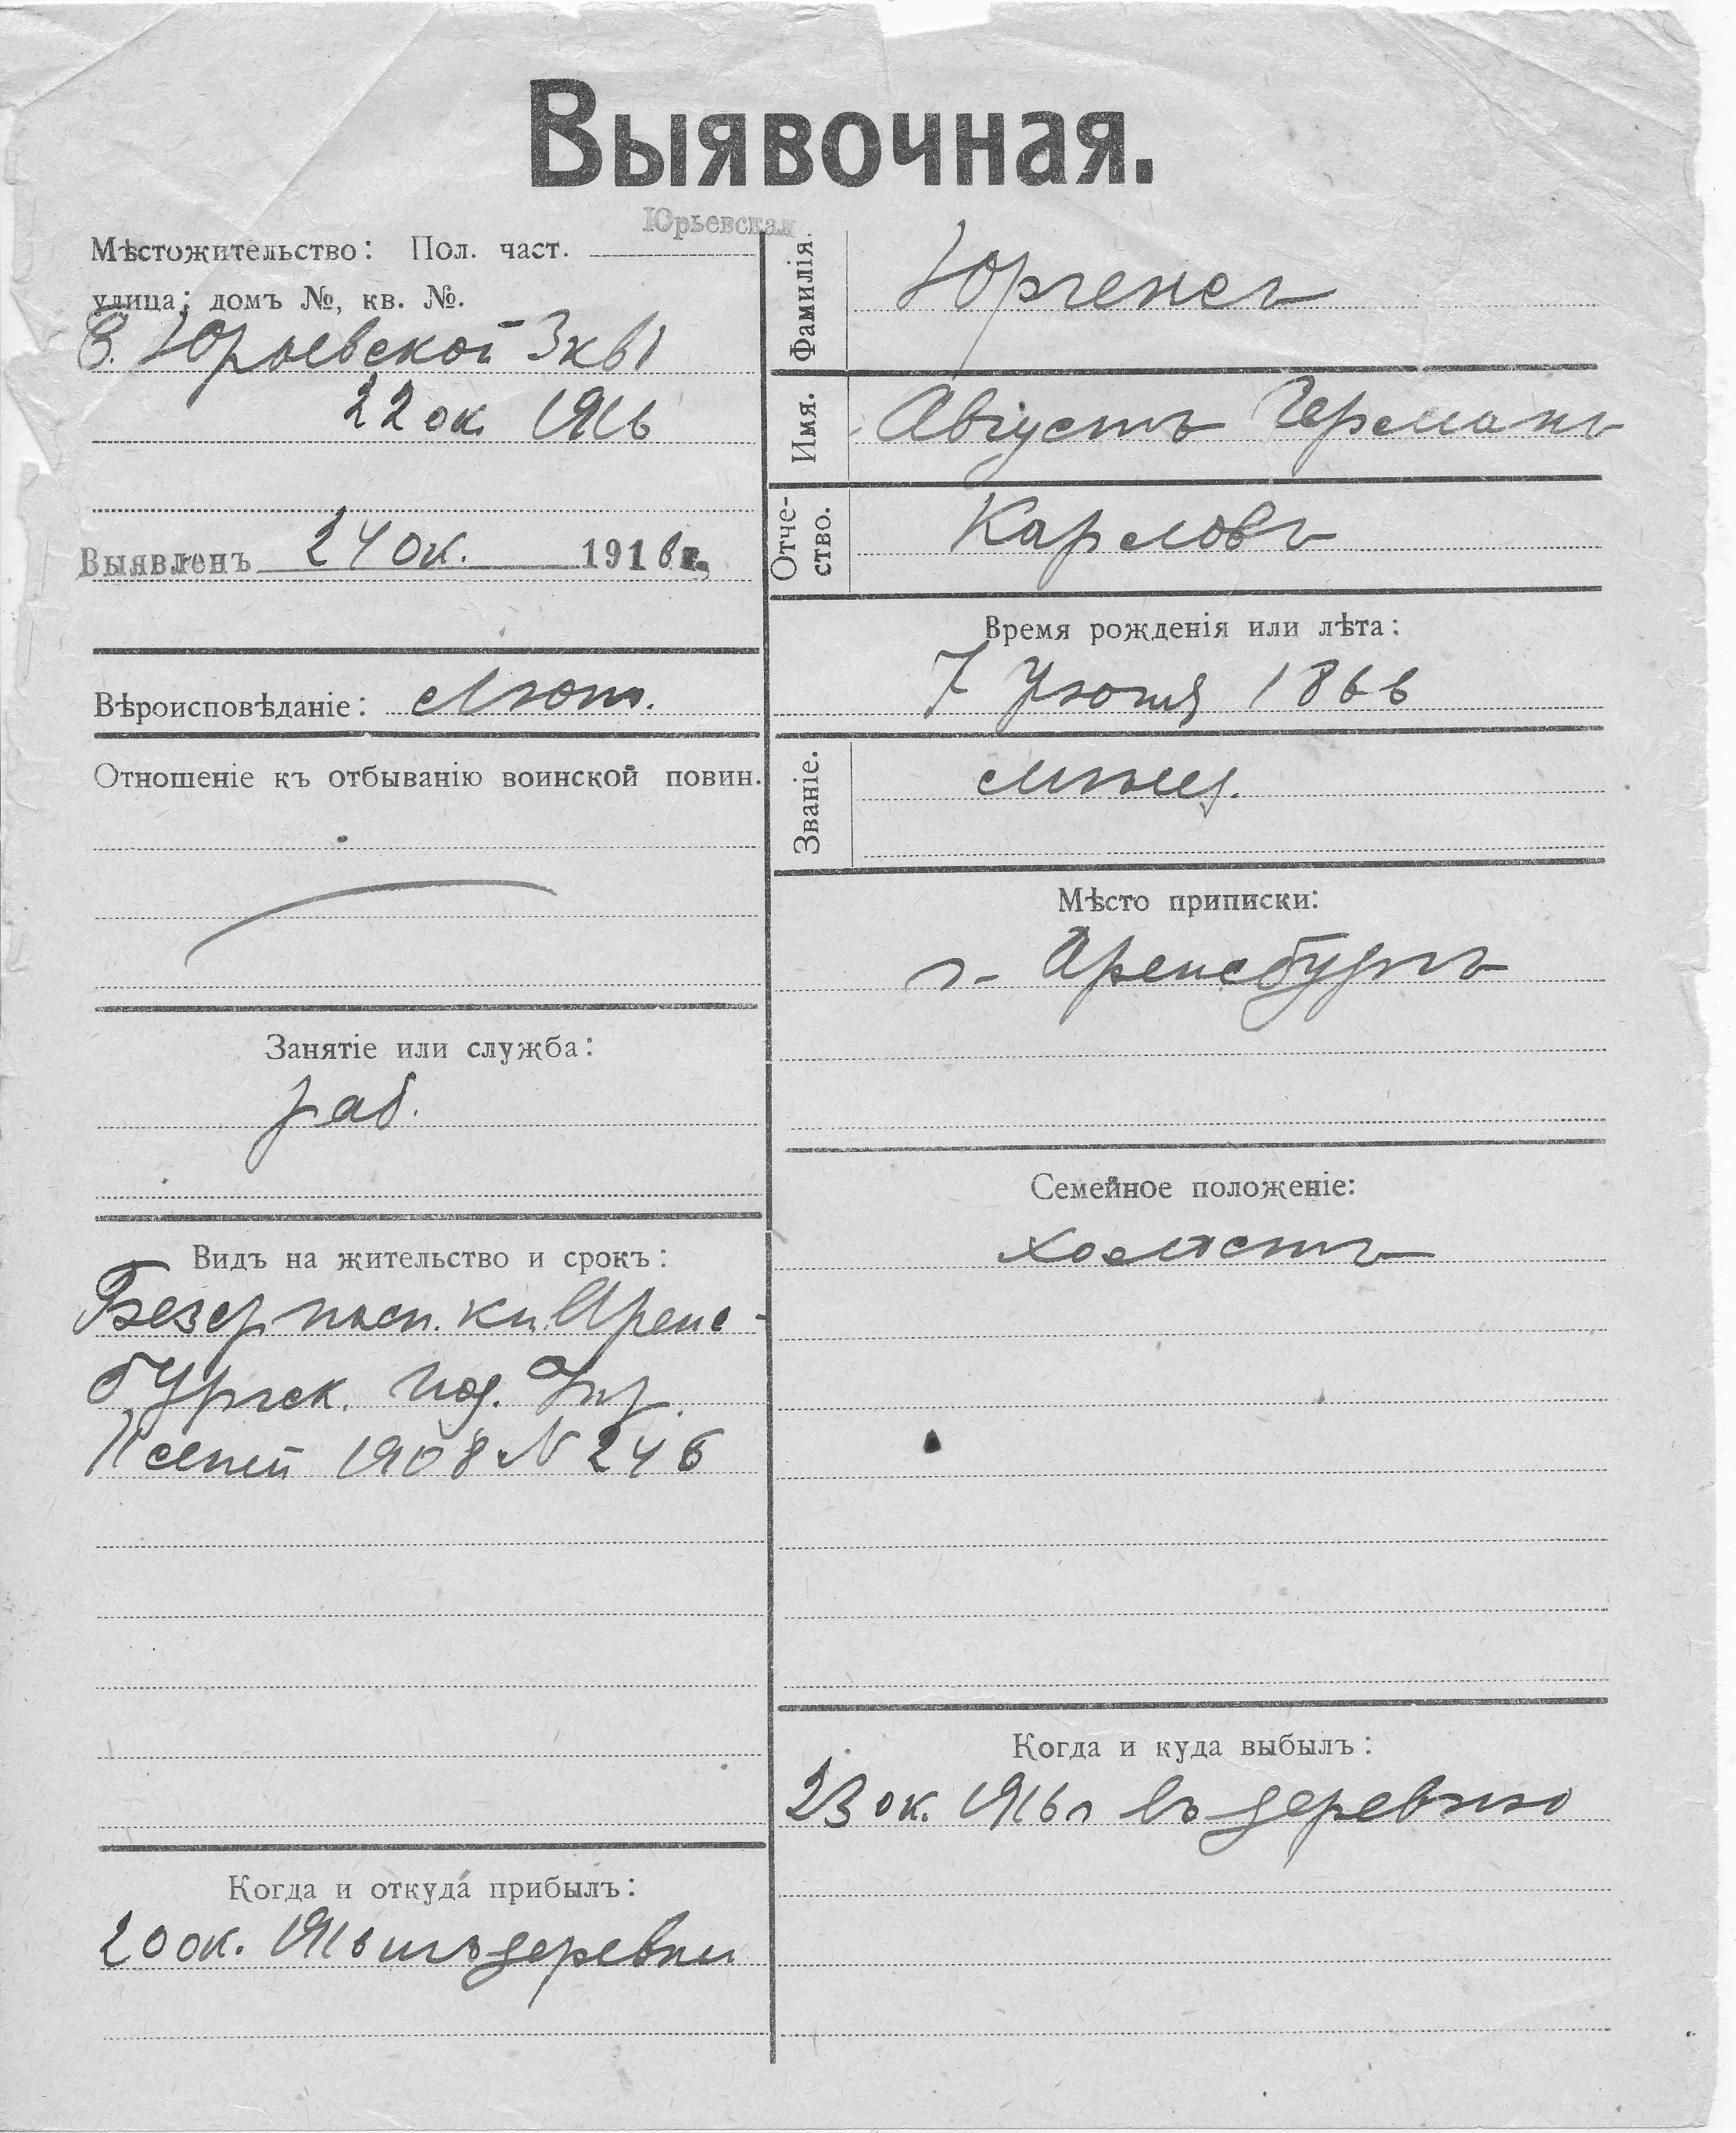 Выявочная.
Юрьевская
Мѣстожительство: Пол. част.
улица; домъ №, кв. №.
Юрьевской 3 кв 1
22 ок. 1916
Выявленъ 24 ок. 1916 г.
Вѣроисповѣданіе: Лют.
Отношеніе къ отбыванію воинской повин.
Занятіе или служба:
раб.
Видъ на жительство и срокъ:
Безср. пасп. кн. Аренс-
бургск. под. упр.
11 сент 1908 № 246
Когда и откуда прибылъ:
20 ок. 1916 изъ деревни
Фамилія.
Юргенсъ
Имя.
Августъ Германъ
Отче-
ство.
Карловъ
Время рожденія или лѣта:
7 1866
Званіе.
мѣщ.
Мѣсто приписки:
г. Аренсбургъ
Семейное положеніе:
холостъ
Когда и куда выбылъ:
23 ок. 1916 г въ деревню